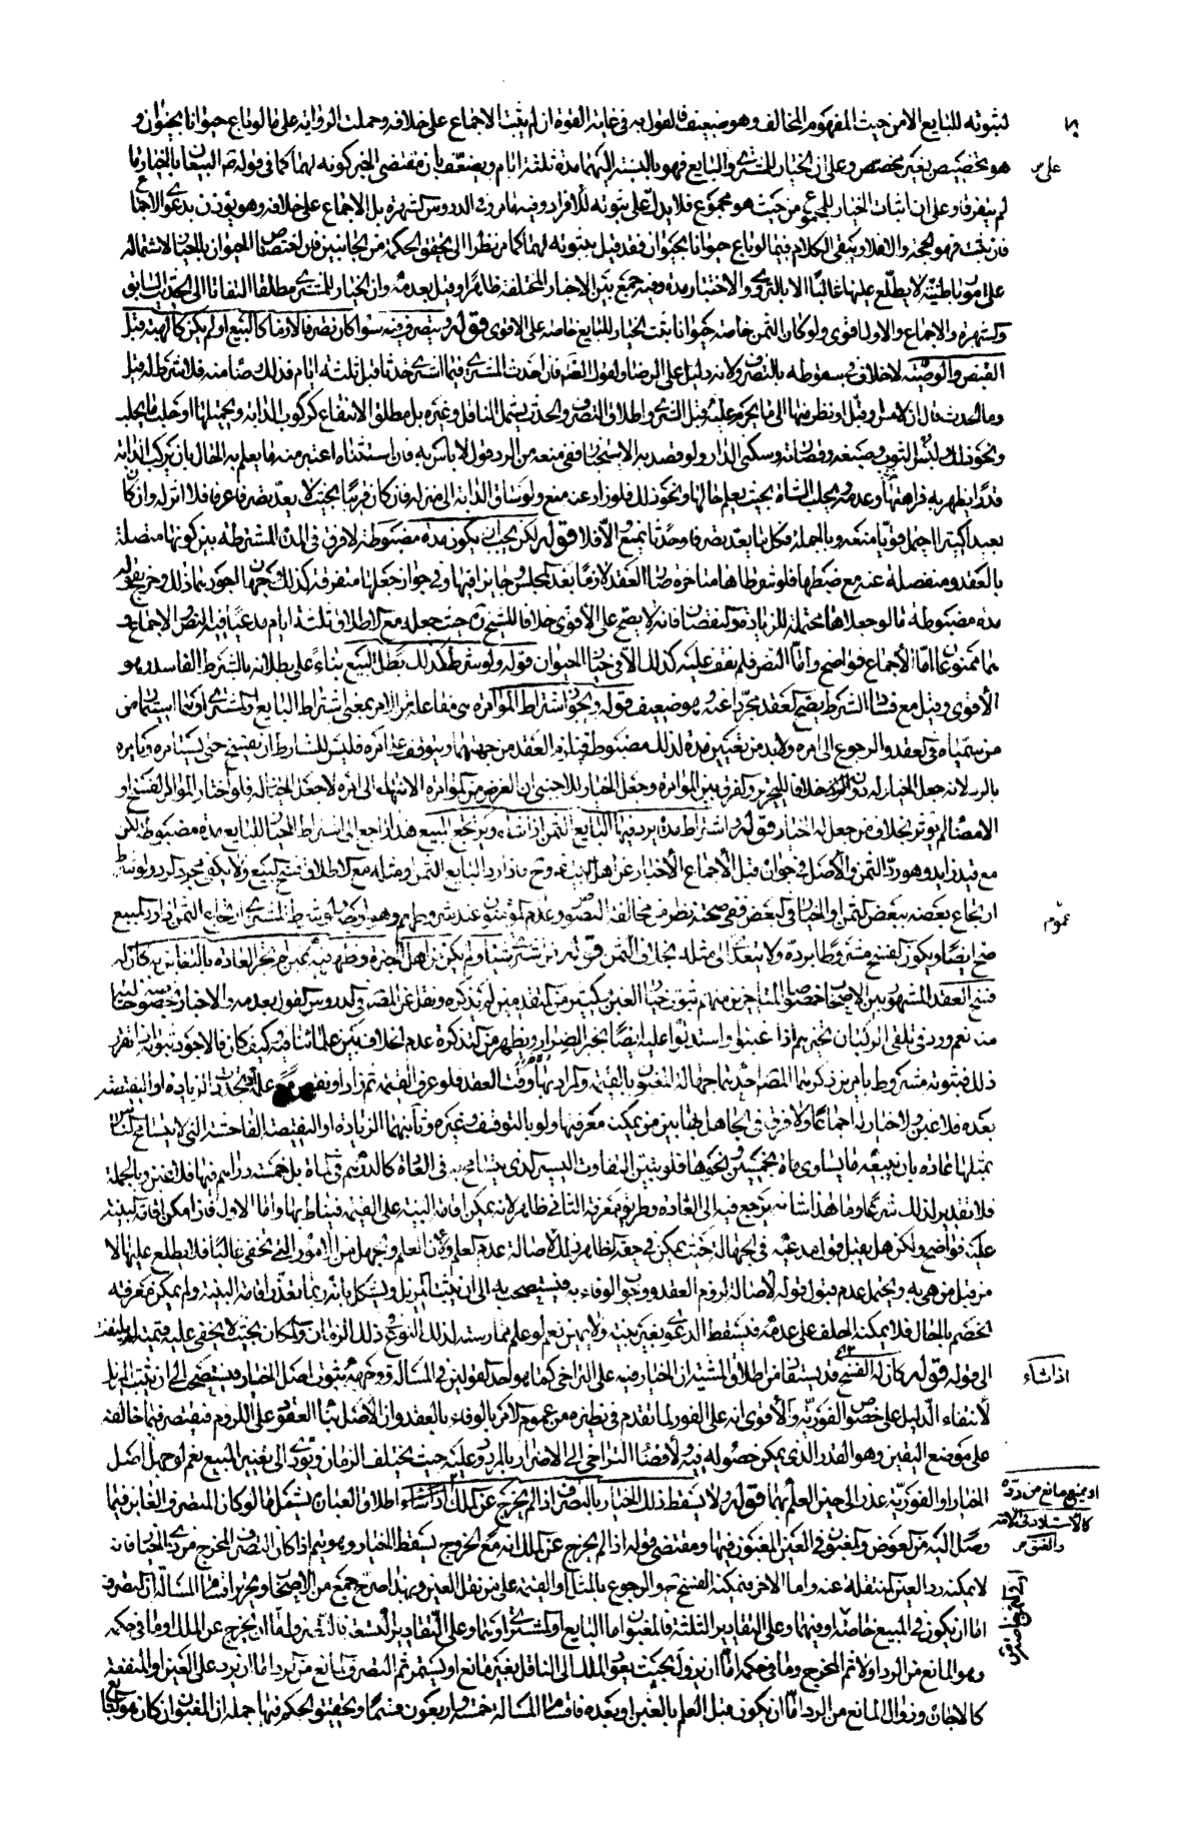 لثبوته للبايع الا من حيث المفهوم المخالف وهو ضعيف فالقول به في غاية القوة ان لم يثبت الاجماع على خلافه وحملت الرواية على ما لو باع حيوانا بحيوان و
هو تخصيص بغير مخصص وعلى ان الخيار للمشتري والبايع فهو بالنسبة اليهما مدة ثلثة ايام ويضعف بان مقتضى الخبر كونه لهما كما في قوله البيعان بالخيار ما
لم يفترقا وعلى ان اثبات الخيار للمجموع من حيث هو مجموع فلا يدل على ثبوته للافراد وفيه ما مر وفي الدروس الشهرة بل الاجماع على خلافه وهو يؤذن بدعوى الاجماع
فان ثبت فهو الحجة والا فلا ويبقى الكلام فيما لو باع حيوانا بحيوان فقد قيل بثبوته لهما كما مر نظرا الى تحقق الحكمة من الجانبين فان اختصاص الحيوان بالخيار لاشتماله
على امور باطنية لا يطلع عليها غالبا الا بالتروي والاختبار مدة وفيه جمع بين الاخبار المختلفة ظاهرا وقيل بعدمه وان الخيار للمشتري مطلقا التفاتا الى الحديث السابق
والشهرة والاجماع والاول اقوى ولو كان الثمن خاصة حيوانا ثبت الخيار للبايع خاصة على الاقوى قوله وبتصرفه فيه سواء كان تصرفا لازما كالبيع او لم يكن كالهبة قبل
القبض والوصية لا خلاف في سقوطه بالتصرف ولانه دليل على الرضا ولقول الصادق فان احدث المشتري فيما اشترى حدثا قبل ثلثة ايام فذلك رضا منه فلا شرط له قيل
وما الحدث قال ان لامس او قبل او نظر منها الى ما يحرم عليه قبل الشرى واطلاق التصرف والحدث يشمل الناقل وغيره بل مطلق الانتفاع كركوب الدابة وتحميلها او حلب ما يحلب
ونحو ذلك ولبس الثوب وصبغه وقصارته وسكنى الدار ولو قصد به الاستخبار ففي منعه من الرد قول لا باس به فان استثناه اعتبر منه ما يعلم به الحال بان يركب الدابة
قدرا يظهر به فراهتها وعدمه ويحلب الشاة بحيث يعلم حالها ونحو ذلك فلو زاد عنه منع ولو ساق الدابة الى منزله فان كان قريبا بحيث لا يعد تصرفا عرفا فلا اثر له وان كان
بعيدا كثيرا احتمل قويا منعه وبالجملة فكل ما يعد تصرفا وحدثا يمنع والا فلا قوله لكن يجب ان يكون مدة مضبوطة لا فرق في المدة المشترطة بين كونها متصلة
بالعقد ومنفصلة عنه مع ضبطها فلو شرطاها متاخرة صار العقد لازما بعد المجلس وجايزا فيها وفي جواز جعلها متفرقة كذلك وجهان اجودهما ذلك وخرج بقوله
مدة مضبوطة ما لو جعلاها محتملة للزيادة والنقصان فانه لا يصح على الاقوى خلافا للشيخ حيث جعله مع الاطلاق ثلثة ايام مدعيا فيه النص والاجماع و
هما ممنوعان اما الاجماع فواضح واما النص فلم نقف عليه كذلك الا في خيار الحيوان قوله ولو شرط كذلك بطل البيع بناء على بطلانه بالشرط الفاسد وهو
الاقوى وقيل مع فساد الشرط يصح العقد مجردا عنه وهو ضعيف قوله ويجوز اشتراط المؤامرة هي مفاعلة من الامر بمعنى اشتراط البايع او المشتري او هما استيمار من
من يسمياه في العقد والرجوع الى امره ولا بد من تعيين مدة لذلك مضبوطة فيلزم العقد من جهتهما ويتوقف على امره فليس للشارط ان يفسخ حتى يستامره ويامره
بالرد لانه جعل الخيار له دونه خلافا للتحرير والفرق بين المؤامرة وجعل الخيار للاجنبي ان الغرض من المؤامرة الانتهاء الى امره لا جعل الخيار له فلو اختار المؤامر الفسخ او
الامضاء لم يؤثر بخلاف من جعل له الخيار قوله واشتراط مدة يرد فيها البايع الثمن اذا شاء ويرتجع المبيع هذا راجع الى اشتراط الخيار للبايع مدة مضبوطة لكن
مع قيد زايد وهو رد الثمن والاصل في جوازه قبل الاجماع الاخبار عن اهل البيت وح فاذا رد البايع الثمن او مثله مع الاطلاق فسخ البيع ولا يكفي مجرد الرد ولو شرط
ارتجاع بعضه ببعض الثمن او الخيار في البعض ففي صحته نظر من مخالفة النصوص وعدم المؤمنون عند شروطهم وهو اوضح ولو شرط المشتري ارتجاع الثمن اذا رد المبيع
صح ايضا ويكون الفسخ مشروطا برده ولا يتعدى الى مثله بخلاف الثمن قوله من اشترى شيئا ولم يكن من اهل الخبرة وظهر فيه غبن لم تجر العادة بالتغابن به كان له
فسخ العقد المشهور بين الاصحاب خصوصا المتاخرين منهم ثبوت خيار الغبن وكثير من المتقدمين لم يذكره ونقل عن المصنف في الدروس القول بعدمه والاخبار بخصوصه خالية
منه نعم ورد في تلقي الركبان تخييرهم اذا غبنوا واستدلوا عليه ايضا بخبر الضرار ويظهر من التذكرة عدم الخلاف بين علمائنا فيه وكيف كان فالاجود ثبوته اذا تقرر
ذلك فثبوته مشروط بامرين ذكرهما المصنف احدهما جهالة المغبون بالقيمة والمراد بها وقت العقد فلو عرف القيمة ثم زاد او نقص مع علمه او تجددت الزيادة او النقيصة
بعده فلا غبن ولا خيار له اجماعا ولا فرق في الجاهل بها بين من يمكنه معرفتها ولو بالتوقف وغيره وثانيهما الزيادة او النقيصة الفاحشة التي لا يتسامح الناس
بمثلها عادة بان يبيعه ما يساوي ماة بخمسين ونحوها فلو تبين التفاوت اليسير الذي يتسامح به في العادة كالدرهم في الماة بل خمسة دراهم فيها فلا غبن وبالجملة
فلا تقدير لذلك شرعا وما هذا شانه يرجع فيه الى العادة وطريق معرفة الثاني ظاهر لانه يمكن اقامة البينة على القيمة فيناط بها واما الاول فان امكن اقامة البينة
عليه فواضح ولكن هل يقبل قول مدعيه في الجهالة حيث يمكن في حقه الظاهر ذلك لاصالة عدم العلم ولان العلم والجهل من الامور التي تخفى غالبا فلا يطلع عليها الا
من قبل من هي به ويحتمل عدم قبول قوله لاصالة لزوم العقد ووجوب الوفاء به فيستصحب الى ان يثبت المزيل ويشكل بانه ربما تعذر اقامة البينة ولم يمكن معرفة
الخصم بالحال فلا يمكنه الحلف على عدمه فتسقط الدعوى بغير بينة ولا يمين نعم لو علم ممارسته لذلك النوع في ذلك الزمان والمكان بحيث لا يخفى عليه قيمته لم يلتفت
الى قوله قوله كان له الفسخ قد يستفاد من اطلاق المشية ان الخيار فيه على التراخي كما هو احد القولين في المسالة ووجهه ثبوت اصل الخيار فيستصحب الى ان يثبت المزيل
لانتفاء الدليل على خصوص الفورية والاقوى انه على الفور لما تقدم في نظيره من عموم الامر بالوفاء بالعقد وان الاصل بناء العقود على اللزوم فيقتصر فيما خالفه
على موضع اليقين وهو القدر الذي يمكن حصوله فيه ولافضاء التراخي الى الاضرار بالمردود عليه حيث يختلف الزمان ويؤدي الى تغيير المبيع نعم لو جهل اصل
الخيار او الفورية عذر الى حين العلم بهما قوله ولا يسقط ذلك الخيار بالتصرف اذا لم يخرج عن الملك اذا شاء اطلاق العبارة يشمل ما لو كان المتصرف الغابن فيما
وصل اليه من العوض والمغبون في العين المغبون فيها ومقتضى قوله اذا لم يخرج عن الملك انه مع الخروج يسقط الخيار وهو يتم اذا كان المتصرف المخرج من ذي الخيار فانه
لا يمكنه رد العين المنتقلة عنه واما الاخر فيمكنه الفسخ والرجوع بالمثل او القيمة على من نقل العين وبهذا صرح جمع من الاصحاب وتحرير اقسام المسالة ان التصرف
اما ان يكون في المبيع خاصة او فيهما وعلى التقادير الثلثة فالمغبون اما البايع او المشتري او هما وعلى التقادير التسعة فالتصرف اما ان يخرج عن الملك او ما في حكمه
وهو المانع من الرد او لا ثم المخرج وما في حكمه اما ان يزول بحيث يعود الملك الى الناقل بغير مانع او يستمر ثم التصرف المانع من الرد اما ان يرد على العين او المنفعة
كالاجارة وزوال المانع من الرد اما ان يكون قبل العلم بالغبن او بعده فاقسام المسالة خمسة واربعون قسما وتحقيق الحكم فيها جملة ان المغبون ان كان هو البايع
على ص
عموم
اذا شاء
او يمنع مانع من رده
كالاستيلاد في الامة
والعتق ص